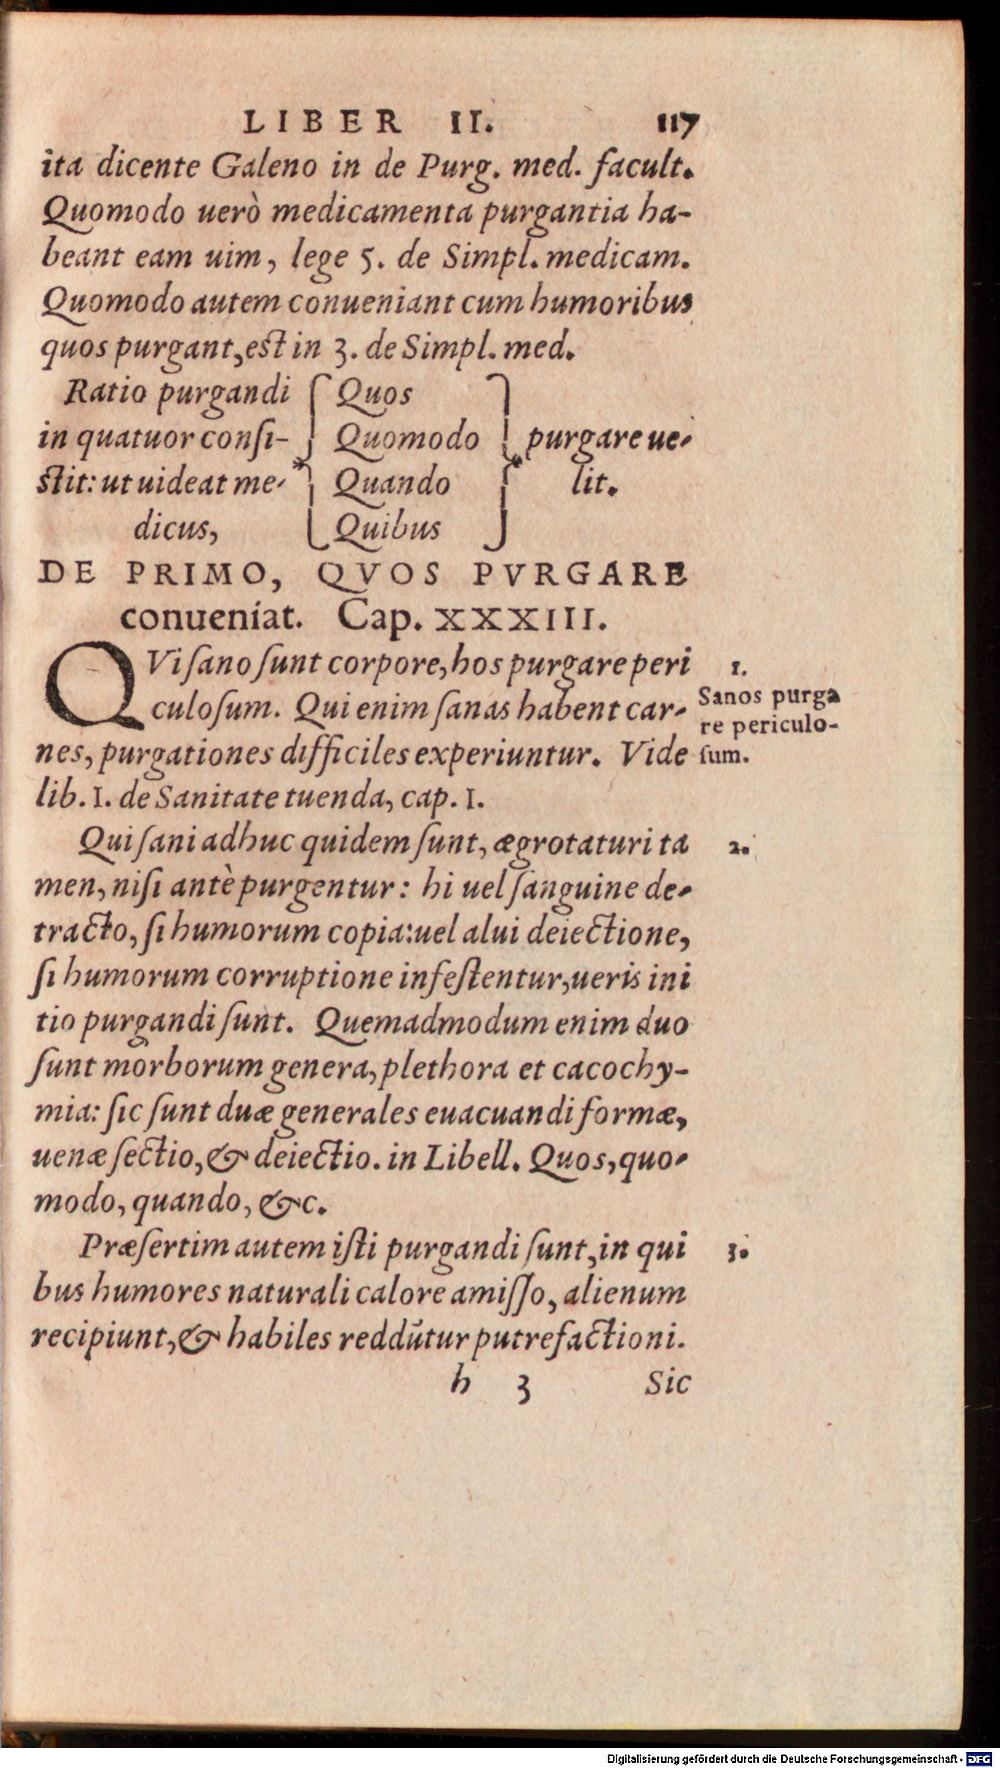 LIBER II. 117
ita dicente Galeno in de Purg. med. facult.
Quomodo uerò medicamenta purgantia ha-
beant eam uim, lege 5. de Simpl. medicam.
Quomodo autem conueniant cum humoribus
quos purgant, est in 3. de Simpl. med.
Ratio purgandi { Quos }
in quatuor consi- { Quomodo } purgare ue-
stit: ut uideat me- { Quando } lit.
dicus, { Quibus }
DE PRIMO, QVOS PVRGARE
conueniat. Cap. XXXIII.
QVi sano sunt corpore, hos purgare peri
culosum. Qui enim sanas habent car-
nes, purgationes difficiles experiuntur. Vide
lib. 1. de Sanitate tuenda, cap. 1.
1.
Sanos purga
re periculo-
sum.
Qui sani adhuc quidem sunt, ægrotaturi ta
men, nisi antè purgentur: hi uel sanguine de-
tracto, si humorum copia: uel alui deiectione,
si humorum corruptione infestentur, ueris ini
tio purgandi sunt. Quemadmodum enim duo
sunt morborum genera, plethora et cacochy-
mia: sic sunt duæ generales euacuandi formæ,
uenæ sectio, & deiectio. in Libell. Quos, quo-
modo, quando, &c.
2.
Præsertim autem isti purgandi sunt, in qui
bus humores naturali calore amisso, alienum
recipiunt, & habiles reddũtur putrefactioni.
3.
h 3 Sic
Digitalisierung gefördert durch die Deutsche Forschungsgemeinschaft - DFG